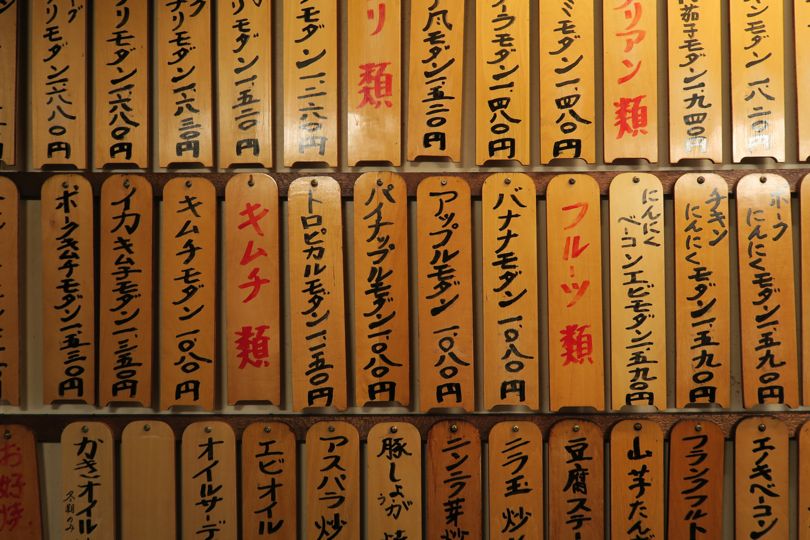 ンモダン 一、八二〇円
茄子モダン 一、九四〇円
リアン類
ミモダン 一、四八〇円
ーラモダン 一、四八〇円
風モダン 一、五二〇円
リ類
モダン 一、二六〇円
モダン 一、五二〇円
リモダン 一、六三〇円
リモダン 一、六八〇円
リモダン 一、六八〇円
ポーク
にんにくモダン 一、五九〇円
チキン
にんにくモダン 一、五九〇円
にんにく
ベーコンエビモダン 一、五九〇円
フルーツ類
バナナモダン 一、〇八〇円
アップルモダン 一、〇八〇円
パイナップルモダン 一、〇八〇円
トロピカルモダン 一、一五〇円
キムチ類
キムチモダン 一、〇八〇円
イカキムチモダン 一、三五〇円
ポークキムチモダン 一、五三〇円
エノキベーコン
フランクフルト
山芋たん
豆腐ステー
ニラ玉炒
ニンニク芽炒
豚しょうが焼
アスパラ炒
エビオイル
オイルサーデ
かきオイル
冬期のみ
お好焼